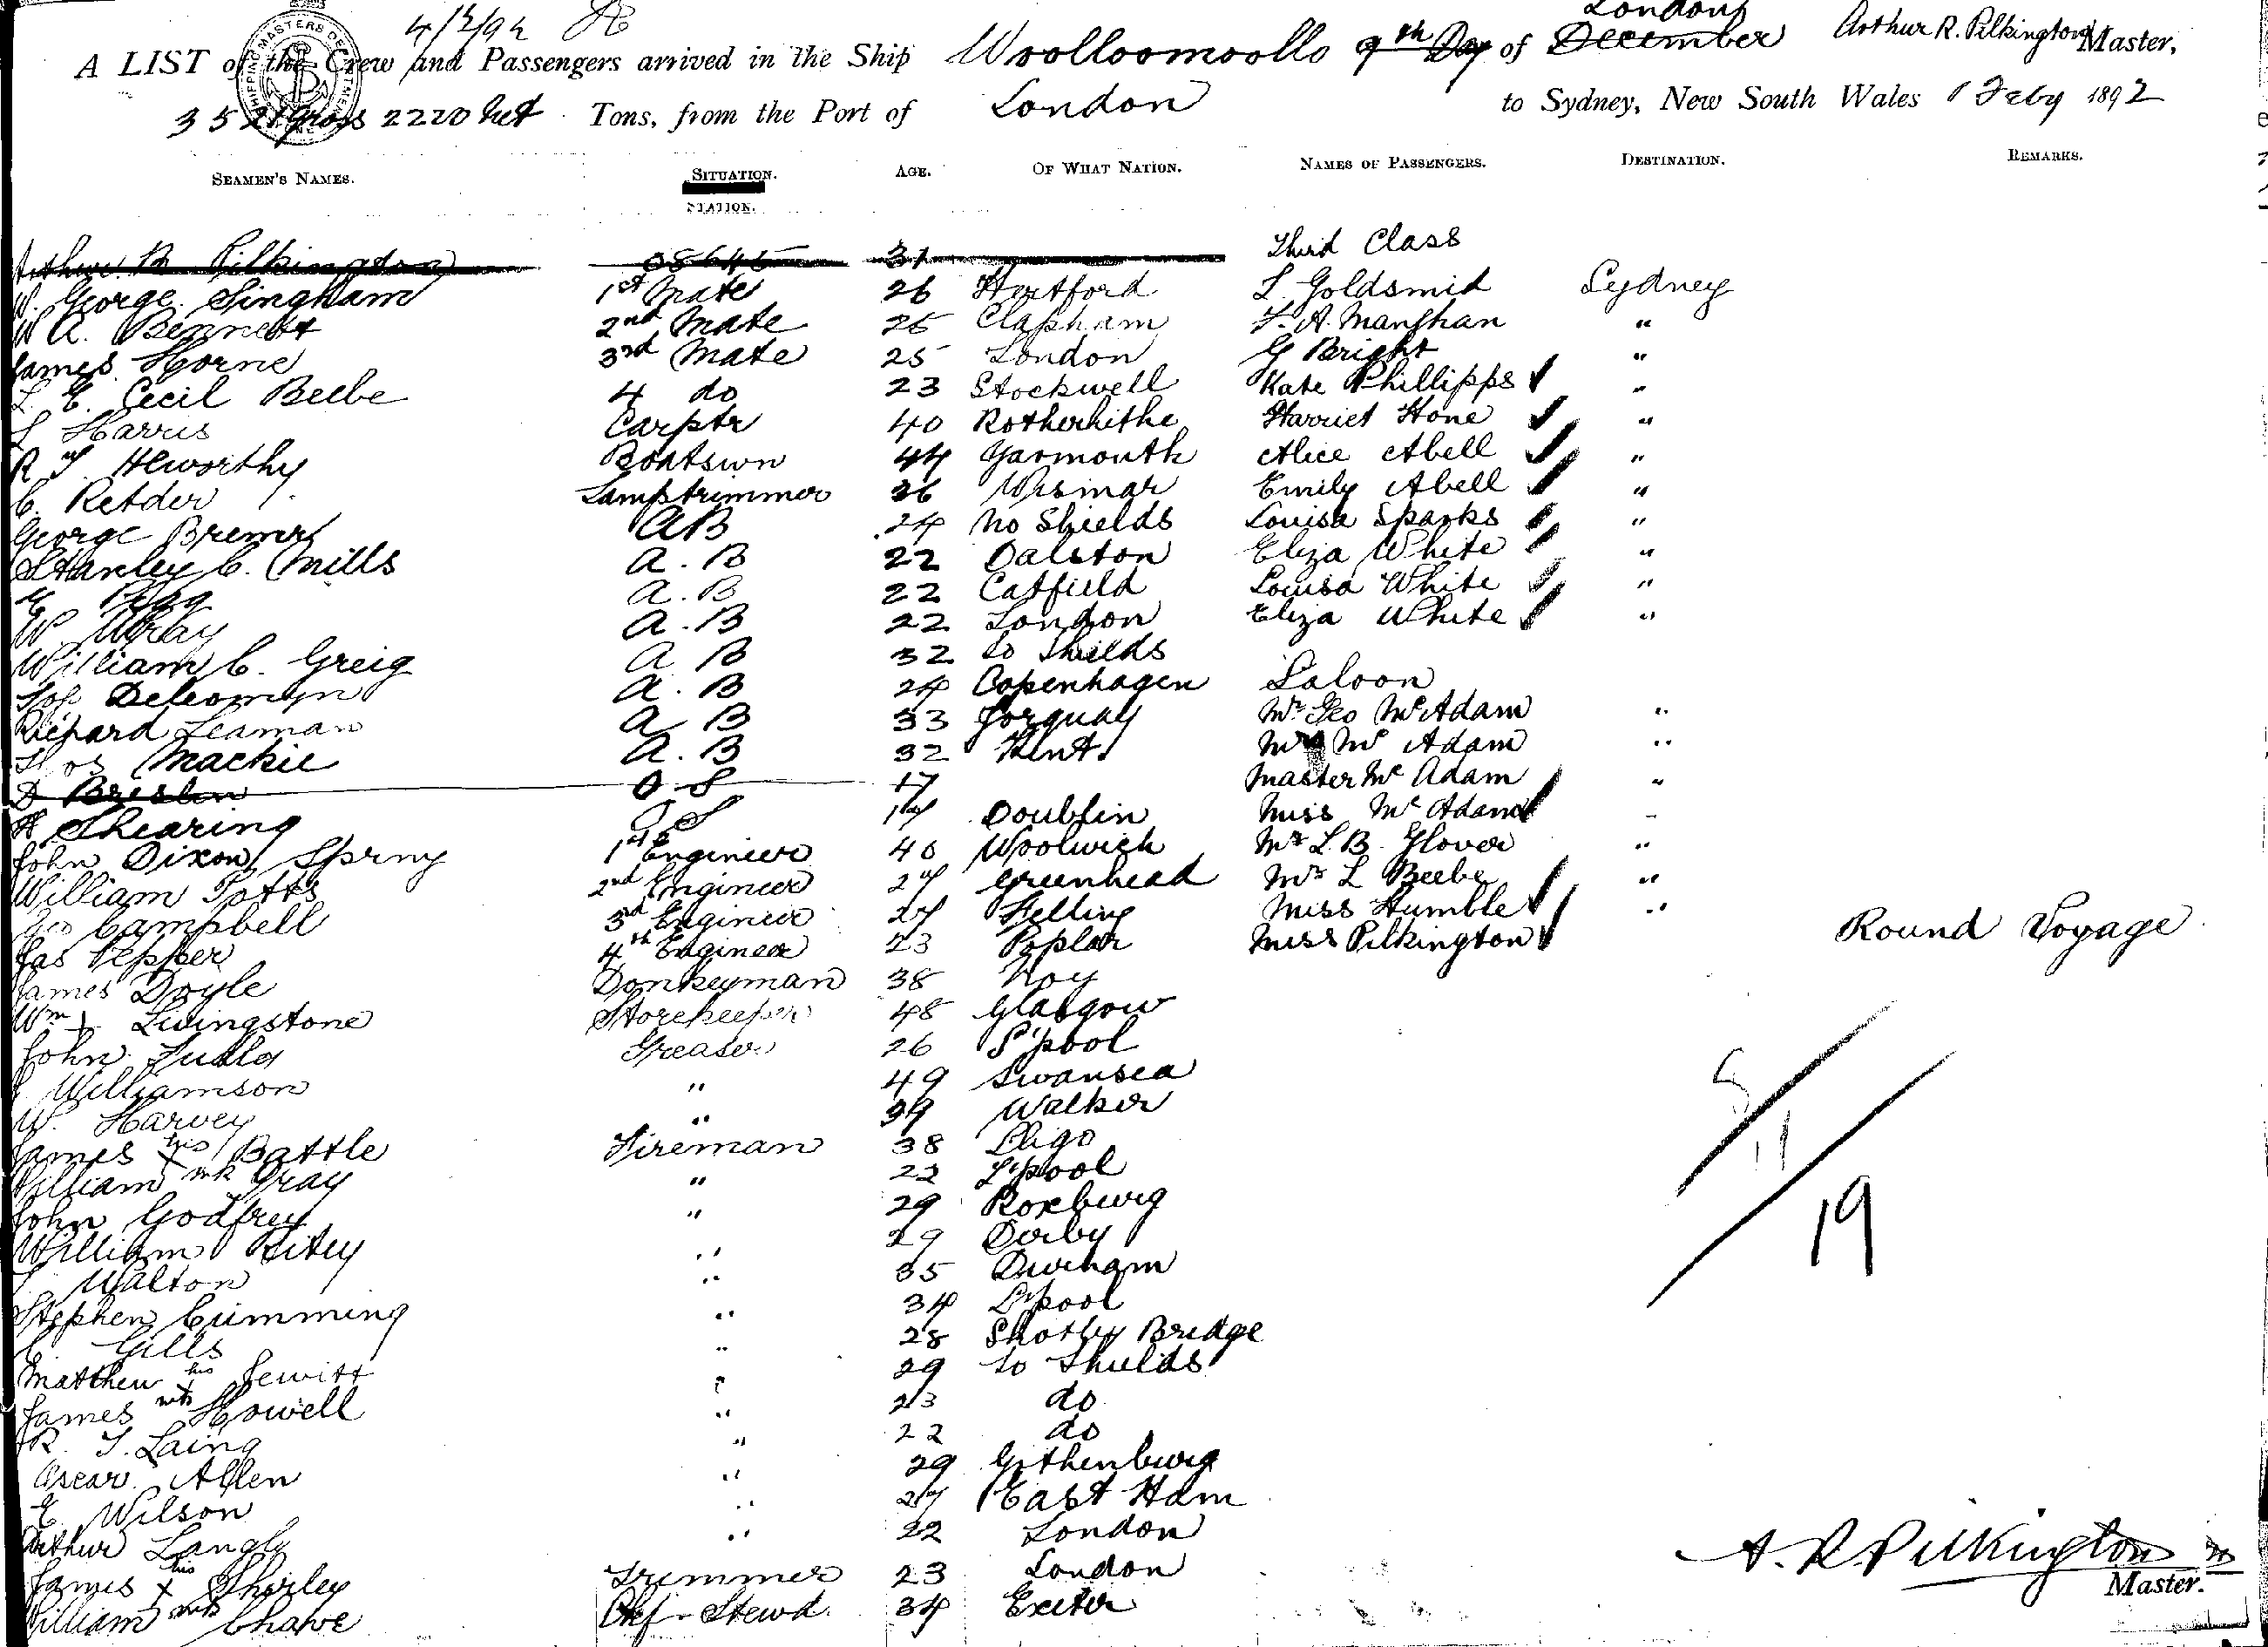 4/2/92
London
A LIST of the Crew and Passengers arrived in the Ship Woolloomoollo 9th Day of December Arthur R. Pilkington Master,
SHIPPING MASTERS DEPARTMENT
Gross 2220 Net Tons, from the Port of London to Sydney, New South Wales 1 Feby 1892
SEAMEN'S NAMES. SITUATION. AGE. OF WHAT NATION. NAMES OF PASSENGERS. DESTINATION. REMARKS.
STATION.
Arthur R Pilkington 31 Third Class
W. George Singham 1st Mate 26 Hertford L. Goldsmid Sydney
W A. Bennett 2nd Mate 26 Clapham F. A. Manghan "
James Horne 3rd Mate 25 London G Bright "
L. E. Cecil Beebe 4 do 23 Stockwell Kate Phillipps "
Harris Carptr 40 Rotherhithe Harriet Hone "
R Heworthy Boatswn 44 Yarmouth Alice Abell "
C. Retder Lamptrimmer 36 Wismar Emily Abell "
George Bremer AB 24 No Shields Louisa Sparks "
Stanley C. Mills A.B 22 Dalston Eliza White "
A.B 22 Catfield Louisa White "
W. Wray A.B 22 London Eliza White "
William C. Greig A B 32 So Shields
A.B 24 Copenhagen Saloon
Richard Leaman A B 33 Torquay Mr Geo McAdam "
Thos Mackie A.B 32 Kent Mrs Mc Adam "
D Breslin O S 17 Master Mc Adam "
H Shearing O S 17 Doublin Miss Mc Adam "
John Dixon Sprny 1st Engineer 40 Woolwich Mr L.B. Glover "
William Potts 2nd Engineer 27 Greenhead Mr L Beebe "
Geo Campbell 3rd Engineer 27 Felling Miss Humble "
Jas Pepper 4th Engineer 23 Poplar Miss Pilkington Round Voyage
James Doyle Donkeyman 38
Wm Livingstone Storekeeper 48 Glasgow
John Greaser 26 L'pool
Williamson " 49 Swansea
W. Harvey " 39 Walker
James his x Battle Fireman 38 Sligo
William mk Gray " 22 L'pool
John Godfrey " 29 Roxburg
William Riley " 29 Derby
Walton " 35 Durham
Stephen Cumming " 34 L'pool
Gills " 28 Shotley Bridge
Matthew his x Jewitt " 29 So Shields
James mk Howell " 23 do
R. T. Laing " 22 do
Oscar Allen " 29 Gothenburg
E. Wilson " 27 East Ham
Arthur Langly " 22 London
James his x Shorley Trimmer 23 London
William mk Chave Chf-Stewd. 34 Exeter
11
19
A. R Pilkington
Master.